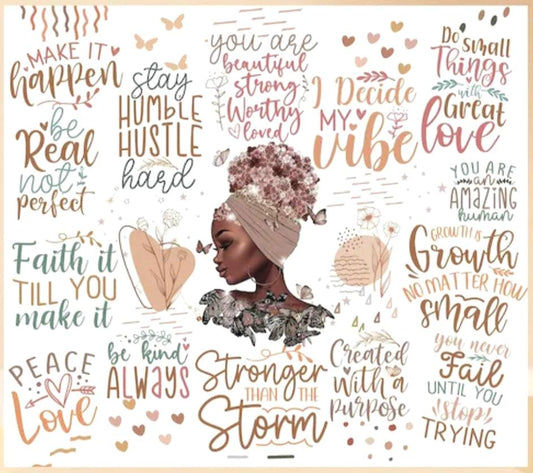 MAKE IT
happen
stay
HUMBLE
HUSTLE
hard
you are
beautiful
strong
Worthy
loved
I Decide
MY
vibe
Do Small
Things
with
Great
love
be
Real
not
perfect
YOU ARE
an
AMAZING
human
Faith it
TILL YOU
make it
GROWTH IS
Growth
NO MATTER HOW
small
PEACE
Love
be kind
ALWAYS
Stronger
THAN THE
Storm
Created
With a
Purpose
you never
Fail
UNTIL YOU
stop
TRYING